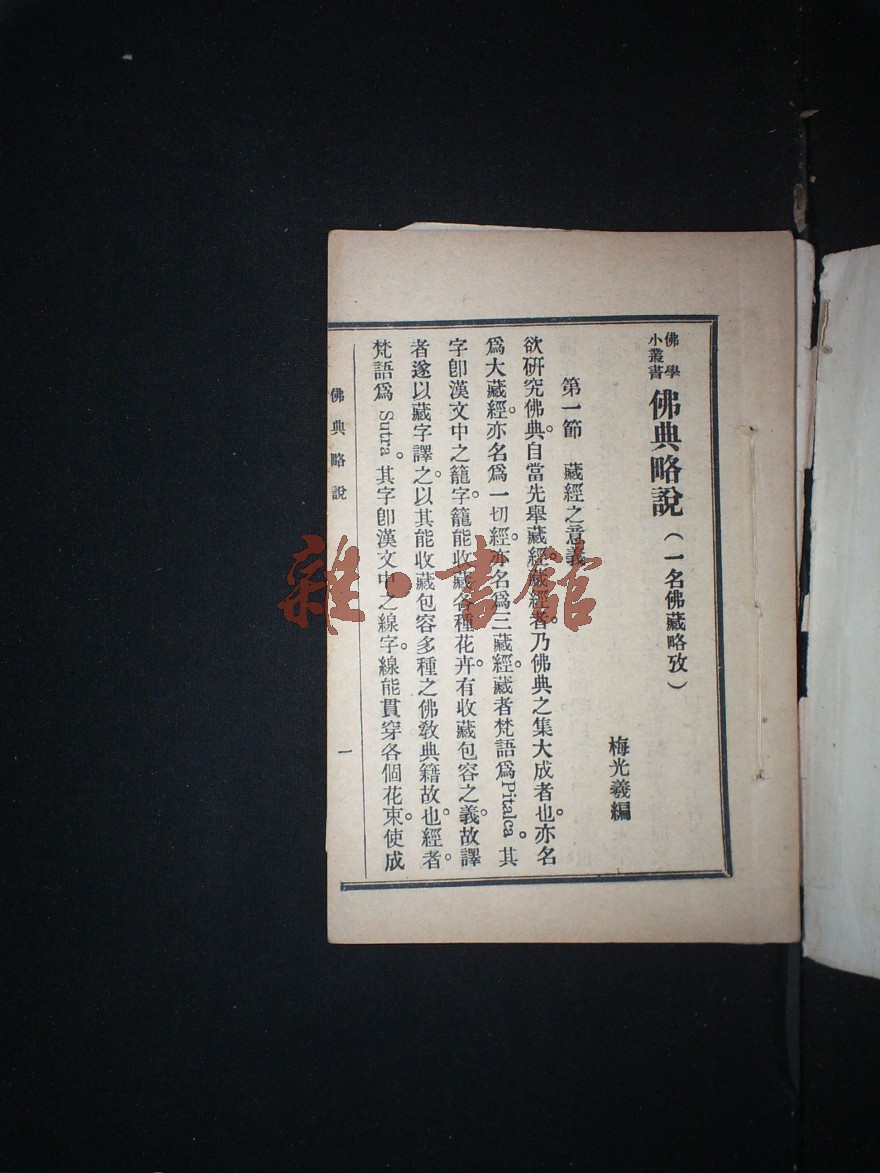 佛學小叢書 佛典略說（一名佛藏略攷）
梅光羲編
第一節 藏經之意義
欲研究佛典。自當先舉藏經。藏經者。乃佛典之集大成者也。亦名
爲大藏經。亦名爲一切經。亦名爲三藏經。藏者梵語爲Pitalca。其
字卽漢文中之籠字。籠能收藏各種花卉。有收藏包容之義。故譯
者遂以藏字譯之。以其能收藏包容多種之佛敎典籍故也。經者。
梵語爲Sutra。其字卽漢文中之線字。線能貫穿各個花束。使成
佛典略說
一
雜·書館